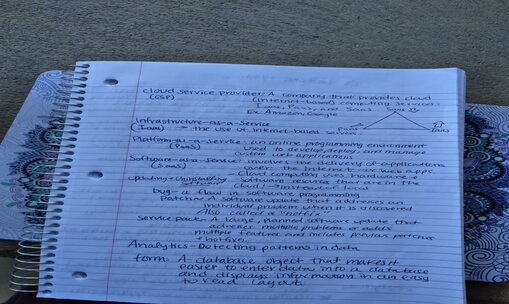 Cloud service provider: A company that provides cloud
(CSP) (Internet-based) computing services.
Iaas, Paas, and Saas
Ex: Amazon, Google
Paas Iaas
Infrastructure-as-a-Service
(Iaas) → the use of Internet-based servers
Platform-as-a-Service: an online programming environment
(Paas) used to develop, deploy, and manage
custom web applications
Software-as-a-Service: involves the delivery of applications
(Saas) over the Internet - or web apps
- Cloud computing uses hardware &
Updating + Uninstalling Software software resource that are in the
cloud, instead of local
bug - a flaw in software programming
Patch - A software update that addresses an
individual problem when it is discovered
Also called a "hotfix".
Service pack - A large, planned software update that
addresses multiple problems or adds
multiple features and includes previous patches
+ hotfixes
Analytics - Detecting patterns in data
form: A database object that makes it
easier to enter data into a database
and displays information in an easy
to read layout.